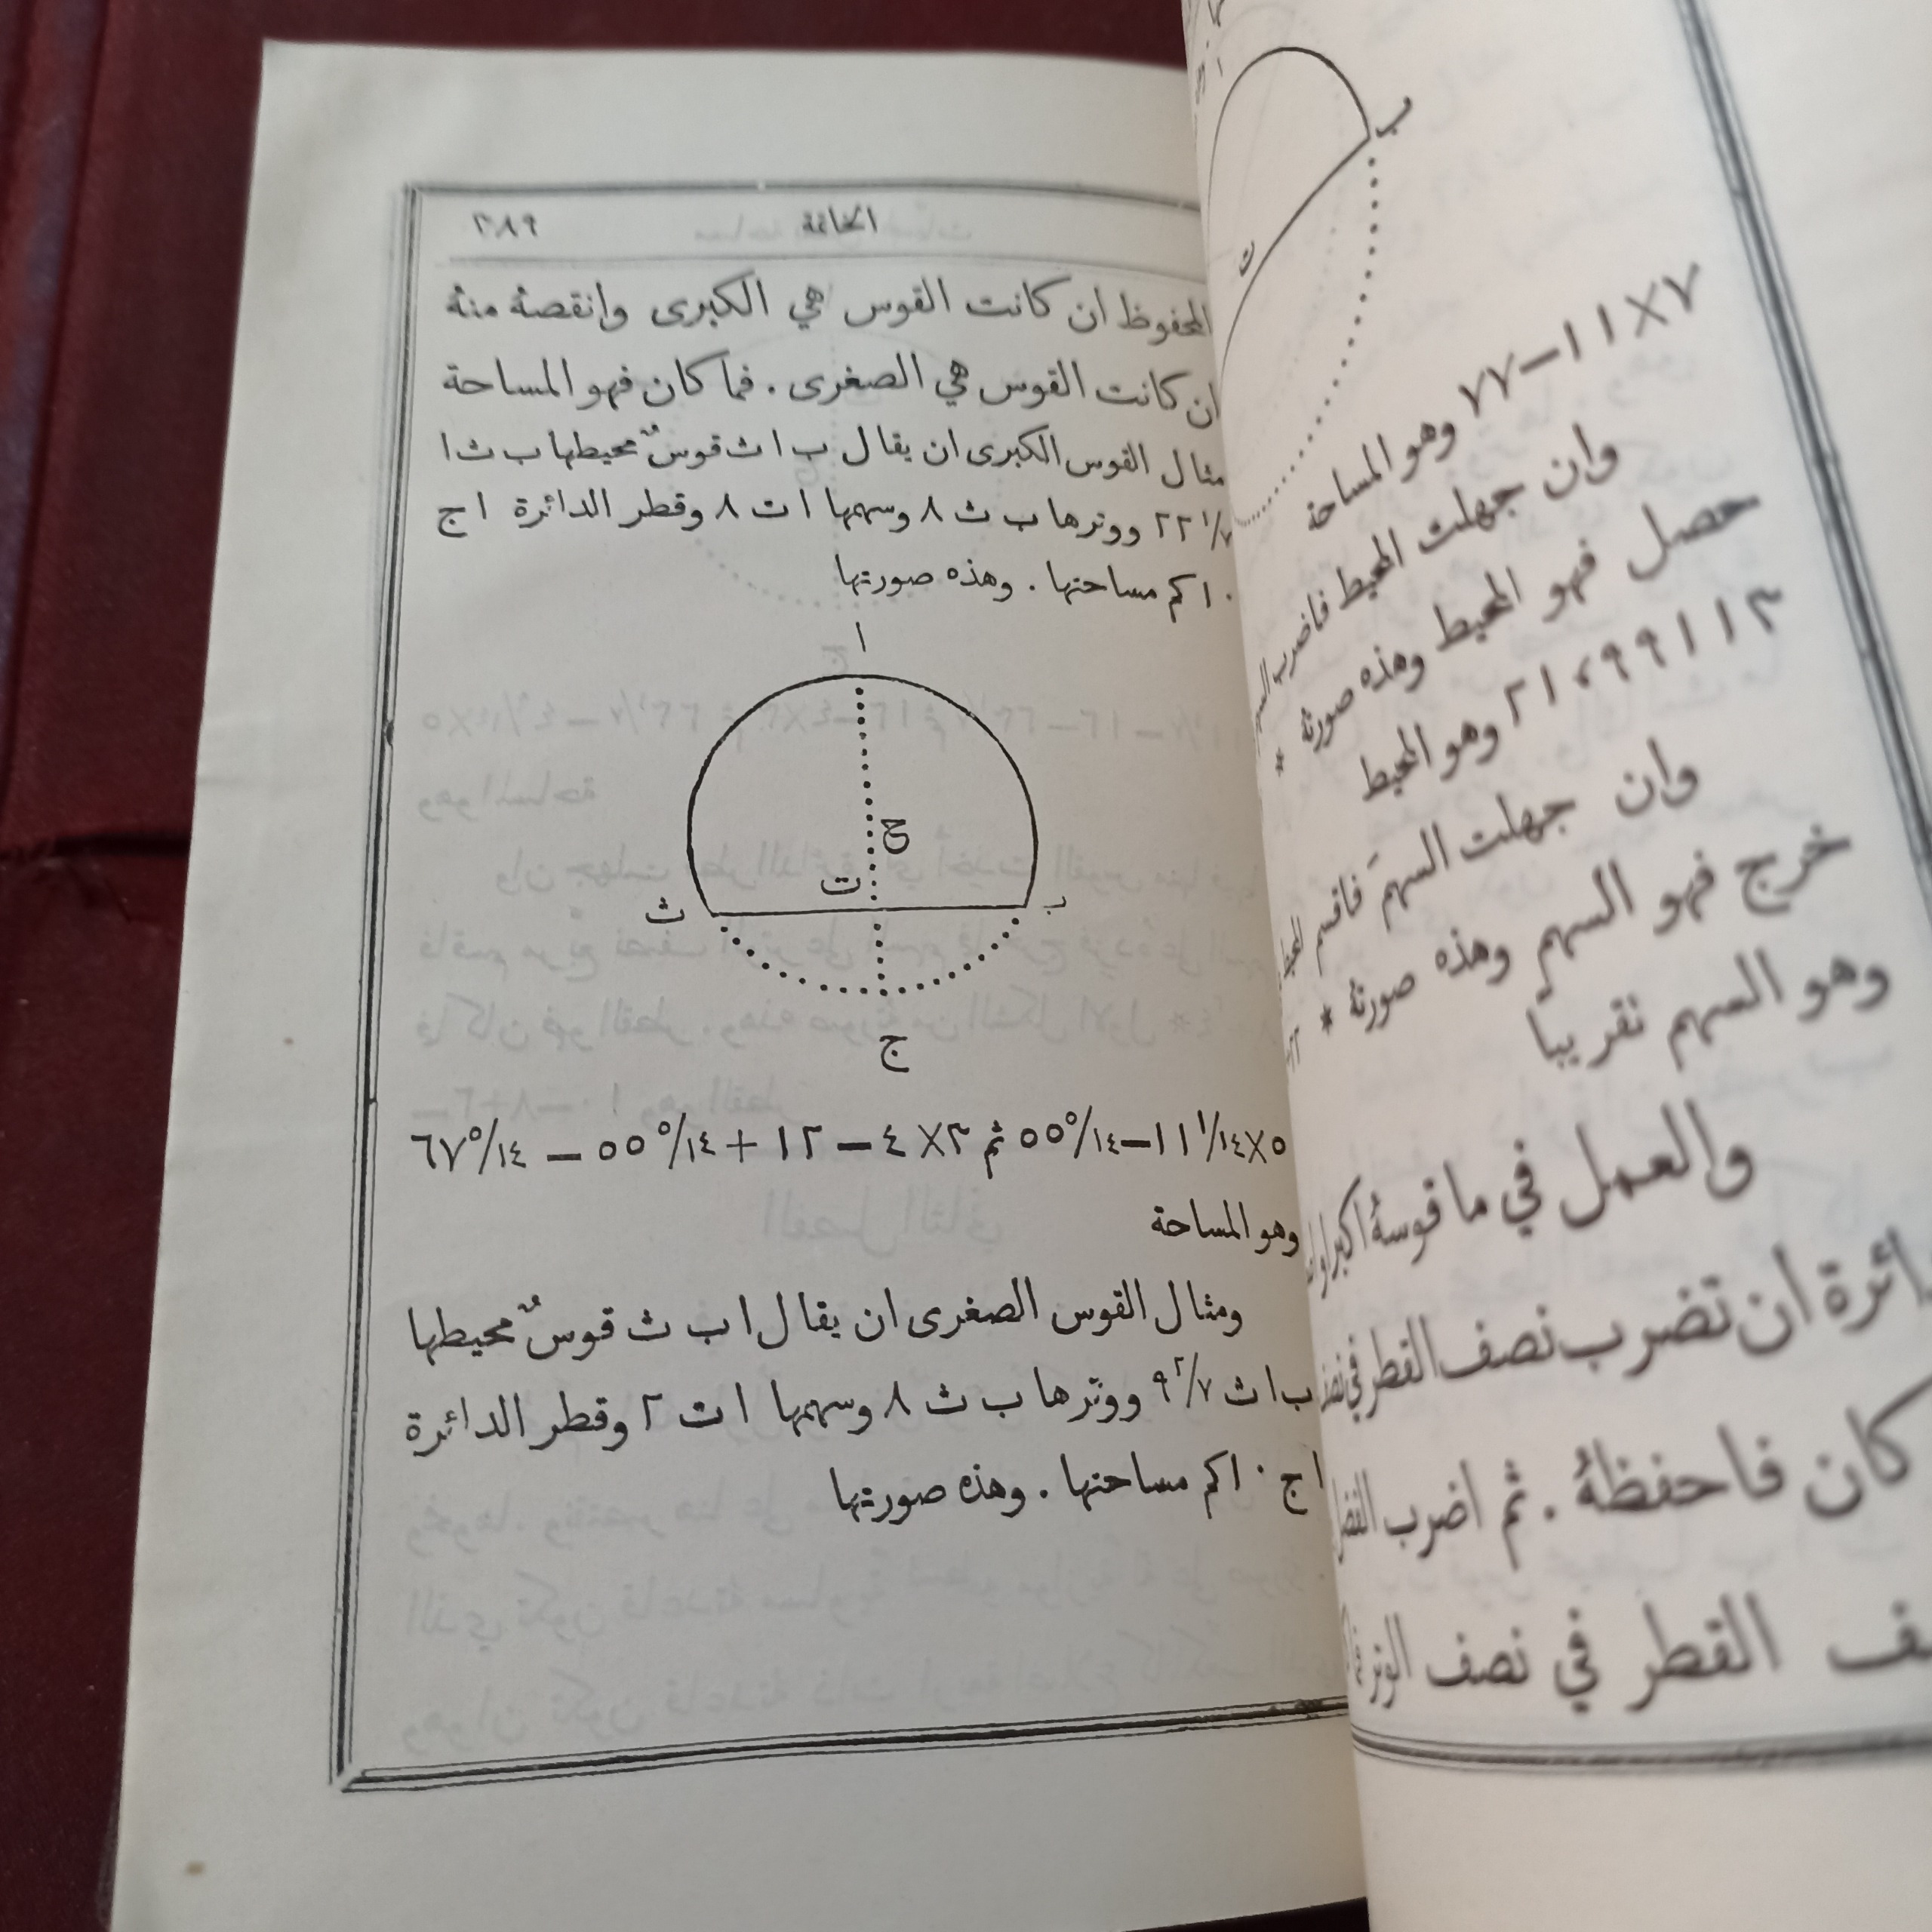 الخاتمة ٢٨٩
المحفوظ ان كانت القوس هي الكبرى وانقصهُ منهُ
ان كانت القوس هي الصغرى . فما كان فهو المساحة
مثال القوس الكبرى ان يقال ب ا ث قوسٌ محيطها ب ث ا
٢٢ ١/٧ ووترها ب ث ٨ وسهمها ا ت ٨ وقطر الدائرة ا ج
١٠ كم مساحتها . وهذه صورتها
ا
ح
ت
ث
ب
ج
٥×١١ ١/١٤—٥٥ ٥/١٤ ثم ٣×٤—١٢+٥٥ ٥/١٤—٦٧ ٥/١٤
وهو المساحة
ومثال القوس الصغرى ان يقال ا ب ث قوسٌ محيطها
ب ا ث ٩ ٢/٧ ووترها ب ث ٨ وسهمها ا ت ٢ وقطر الدائرة
ا ج ١٠ كم مساحتها . وهذه صورتها
ب
ت
٧×١١—٧٧ وهو المساحة
وان جهلت المحيط فاضرب
حصل فهو المحيط وهذه صورتهُ *
٢١،٩٩١١٣ وهو المحيط
وان جهلت السهم فاقسم
خرج فهو السهم وهذه صورتهُ *
وهو السهم تقريباً
والعمل في ما قوسهُ اكبر او
دائرة ان تضرب نصف القطر في
كان فاحفظهُ . ثم اضرب الفضل
القطر في نصف الوتر